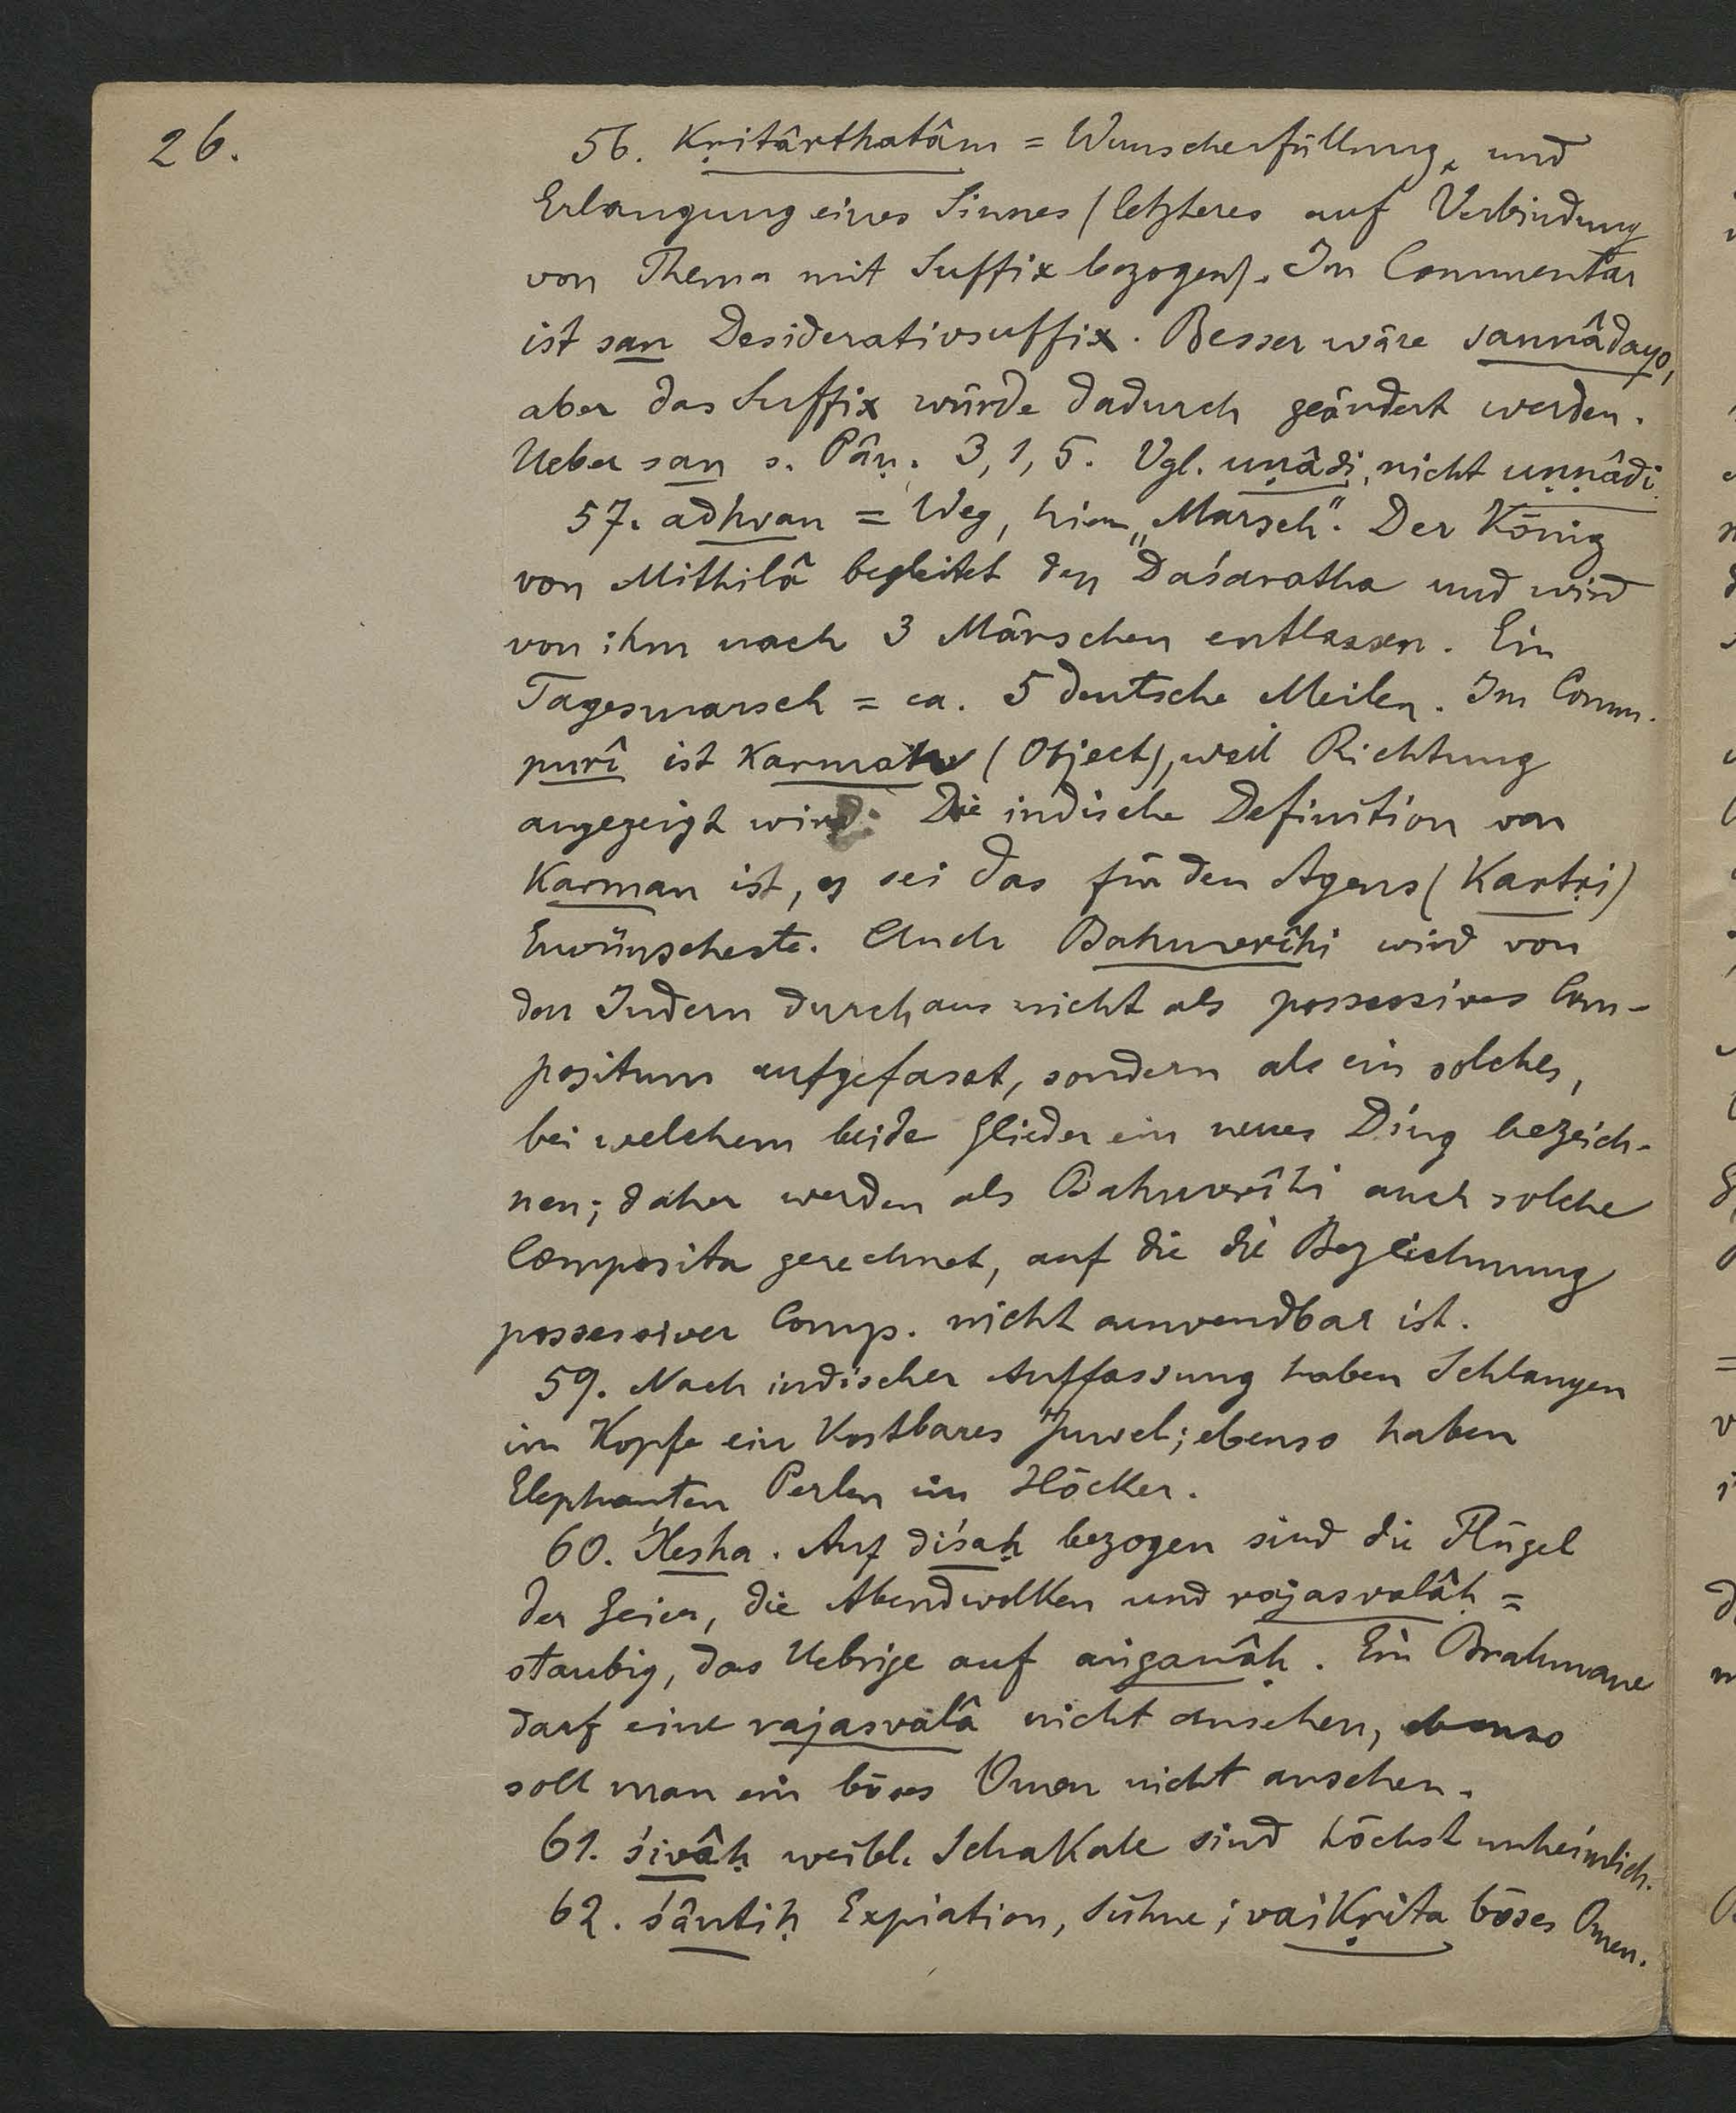 26.
56. Kṛitârthatâm = Wunscherfüllung, und
Erlangung eines Sinnes (letzteres auf Verbindung
von Thema mit Suffix bezogen). Im Commentar
ist san Desiderativsuffix. Besser wäre sannâdayo,
aber das Suffix würde dadurch geändert werden.
Ueber san s. Pâṇ. 3, 1, 5. Vgl. uṇâdi, nicht uṇṇâdi.
57. adhvan = Weg, hier „Marsch". Der König
von Mithilâ begleitet den Daśaratha und wird
von ihm nach 3 Märschen entlassen. Ein
Tagesmarsch = ca. 5 deutsche Meilen. Im Comm.
purî ist Karman (Object), weil Richtung
angezeigt wird. Die indische Definition von
Karman ist, es sei das für den Agens (Kartṛi)
Erwünschteste. Auch Bahuvrîhi wird von
den Indern durchaus nicht als possessives Com-
positum aufgefasst, sondern als ein solches,
bei welchem beide Glieder ein neues Ding bezeich-
nen; daher werden als Bahuvrîhi auch solche
Composita gerechnet, auf die die Bezeichnung
possessiver Comp. nicht anwendbar ist.
59. Nach indischer Auffassung haben Schlangen
im Kopfe ein Kostbares Juwel; ebenso haben
Elephanten Perlen im Höcker.
60. Ślesha. Auf diśaḥ bezogen sind die Flügel
der Geier, die Abendwolken und rajasvalâḥ =
staubig, das Uebrige auf aṅganâḥ. Ein Brahmane
darf eine rajasvalâ nicht ansehen, ebenso
soll man ein böses Omen nicht ansehen.
61. śivâḥ weibl. Schakale sind höchst unheimlich.
62. śântiḥ Expiation, Sühne; vaikṛita böses Omen.